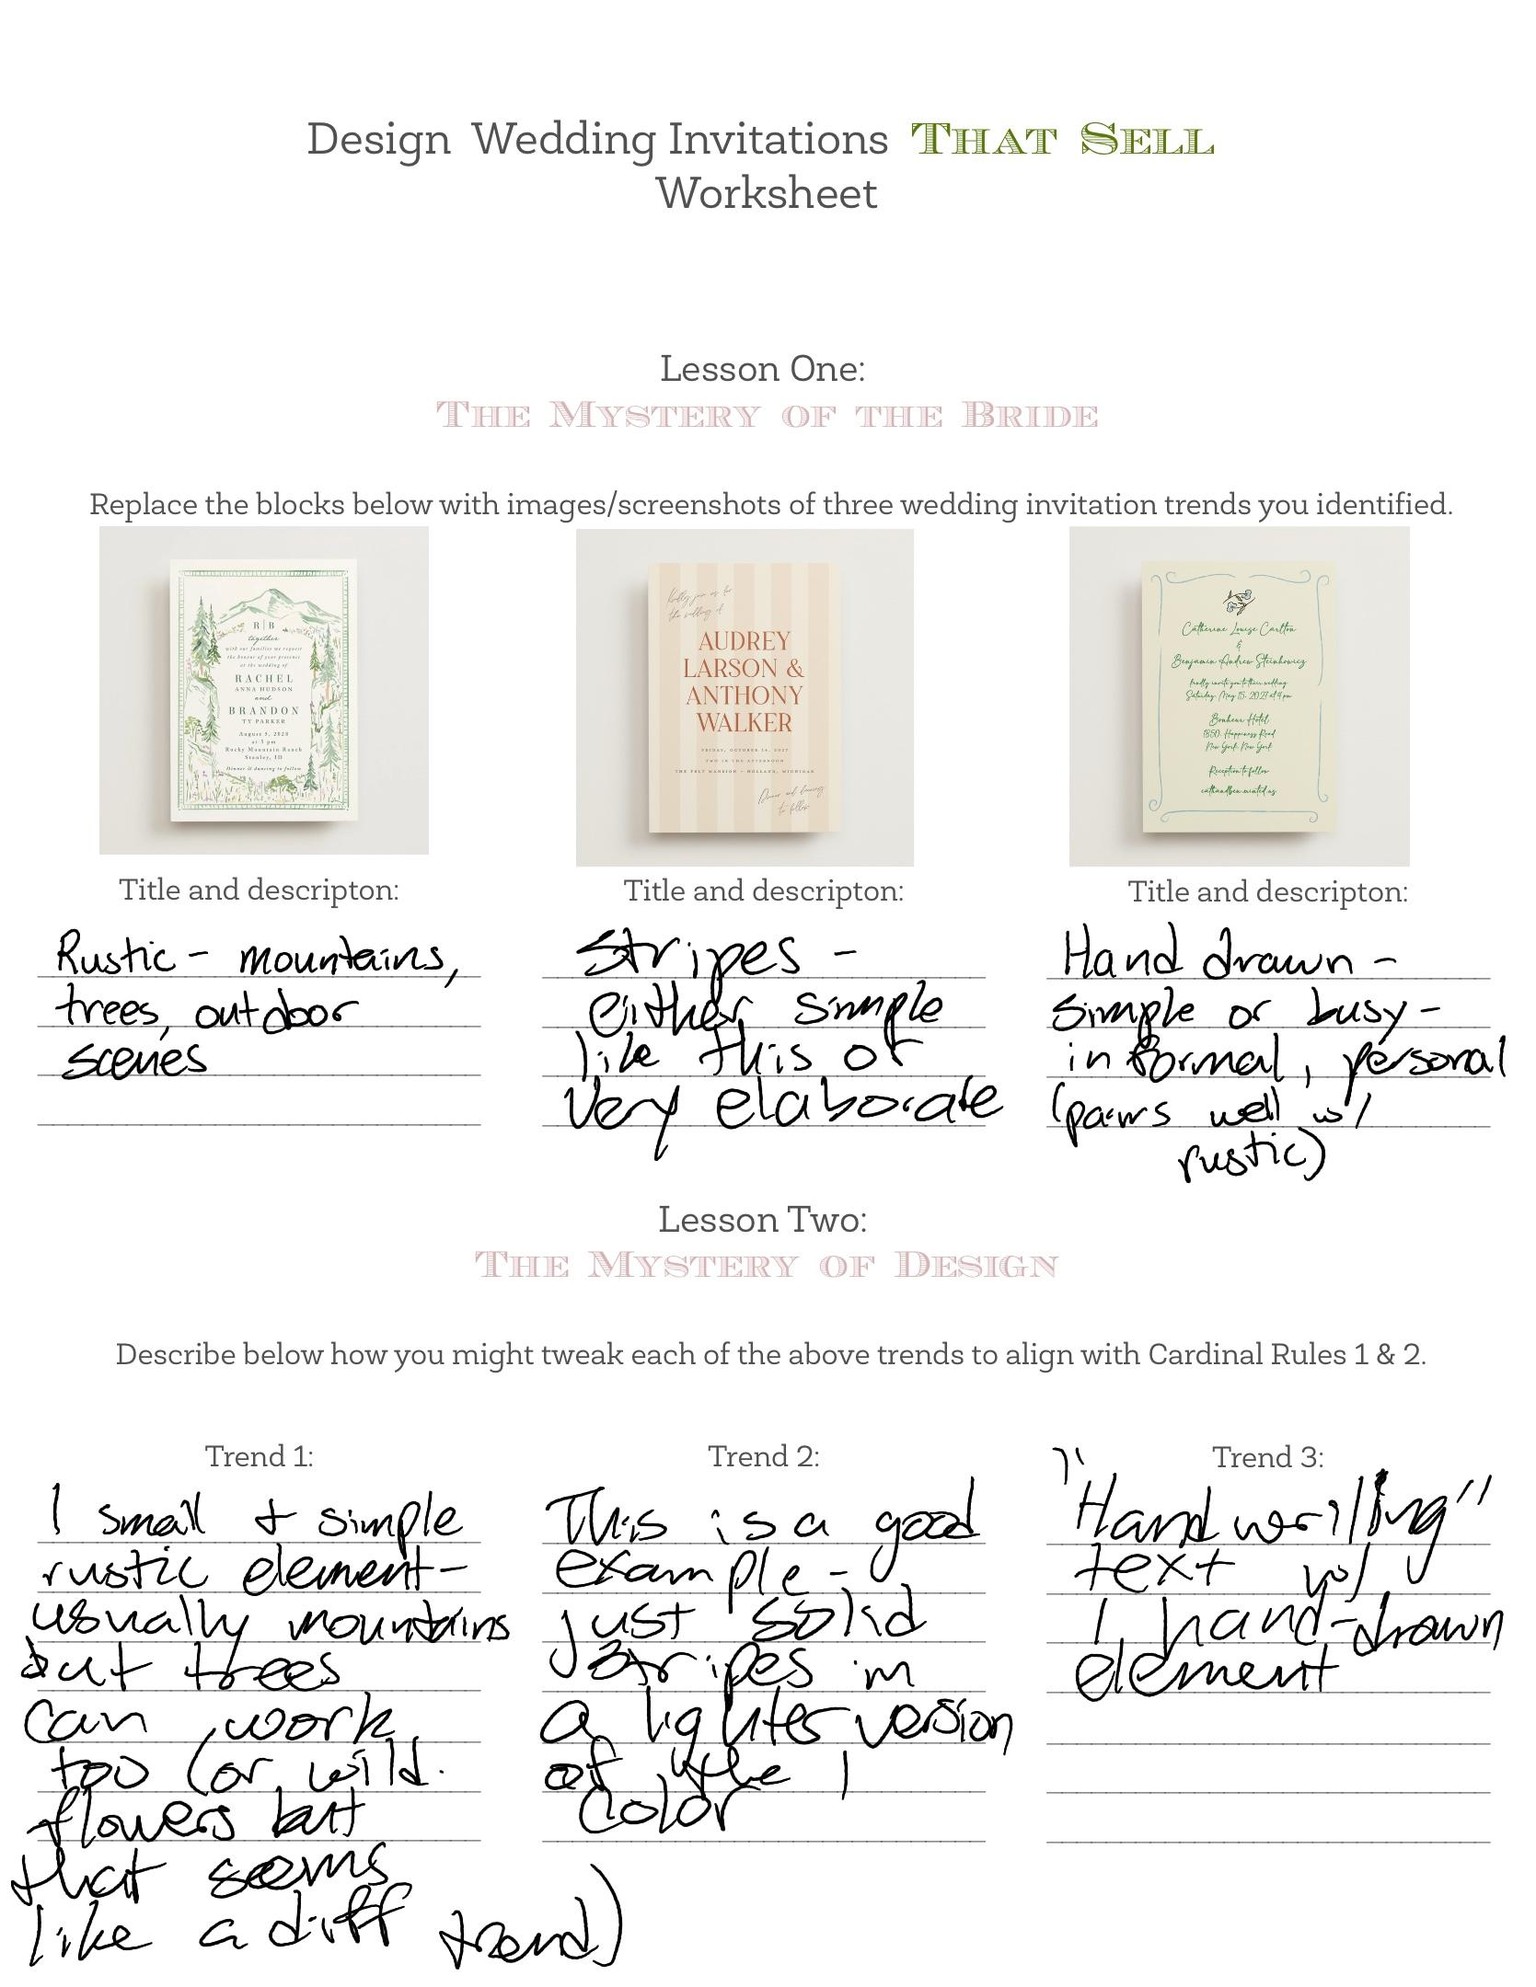 Design Wedding Invitations THAT SELL
Worksheet
Lesson One:
THE MYSTERY OF THE BRIDE
Replace the blocks below with images/screenshots of three wedding invitation trends you identified.
R|B
together
with our families we request
the honour of your presence
at the wedding of
RACHEL
ANNA HUDSON
and
BRANDON
TY PARKER
August 5, 2028
at 5 pm
Rocky Mountain Ranch
Stanley, ID
Dinner & dancing to follow
Kindly join us for
the wedding of
AUDREY
LARSON &
ANTHONY
WALKER
FRIDAY, OCTOBER 14, 2027
TWO IN THE AFTERNOON
THE FELT MANSION • HOLLAND, MICHIGAN
Dinner and dancing
to follow
Catherine Louise Carlton
&
Benjamin Andrew Steinkowicz
kindly invite you to their wedding
Saturday, May 15, 2027 at 4 pm
Bonheur Hotel
1850 Happiness Road
New York, New York
Reception to follow
cathandben.minted.us
Title and descripton:
Rustic - mountains,
trees, outdoor
scenes
Title and descripton:
Stripes -
either simple
like this or
very elaborate
Title and descripton:
Hand drawn -
simple or busy -
informal, personal
(pairs well w/
rustic)
Lesson Two:
THE MYSTERY OF DESIGN
Describe below how you might tweak each of the above trends to align with Cardinal Rules 1 & 2.
Trend 1:
1 small + simple
rustic element-
usually mountains
but trees
can work
too (or wild.
flowers but
that seems
like a diff trend)
Trend 2:
This is a good
example -
just solid
stripes in
a lighter version
of the 1
color
Trend 3:
"Handwriting"
text w/
1 hand-drawn
element